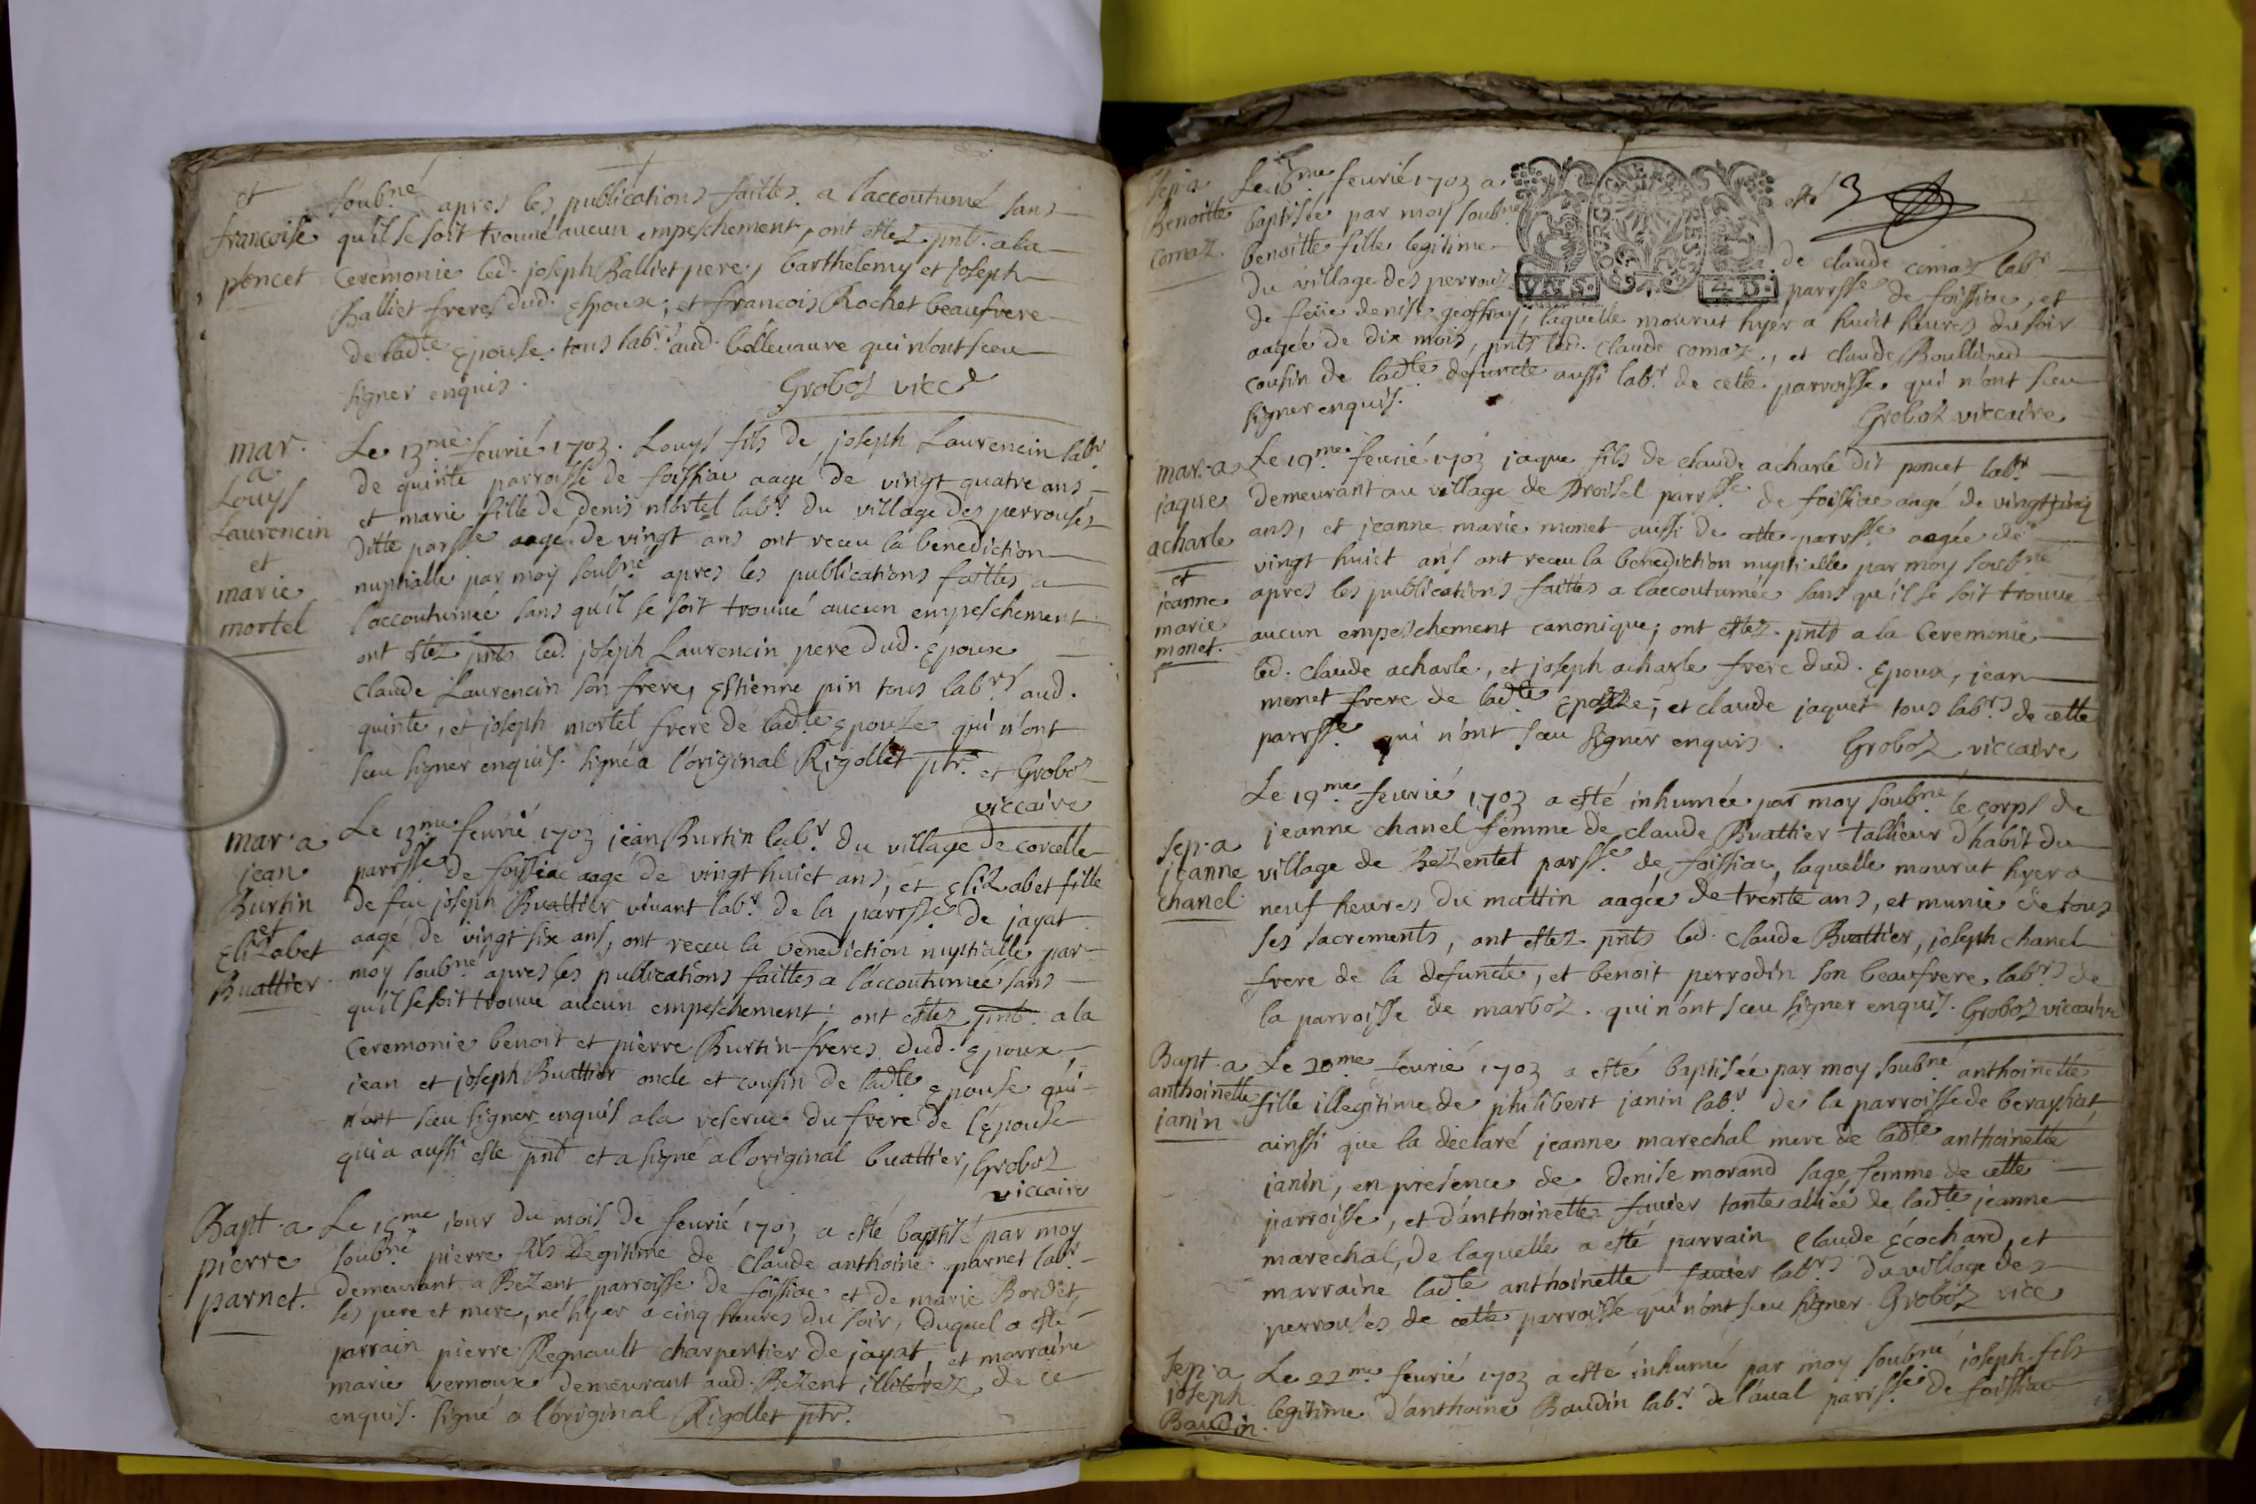 et
francoise
poncet
soub.né apres les publications faittes a l'accoutumé sans
qu'il se soit trouué aucun empeschement, ont estez pnts. a la
Ceremonie led. joseph Balliet pere, barthelemy et joseph
Balliet freres dud. Epoux, et francois Rochet beaufrere
de ladte. Epouse tous labrs. aud. bolleuaure qui n'ont sceu
signer enquis.
Groboz vicc
mar.
a
Louys
Laurencin
et
marie
mortel
Le 13me. feurié 1703. Louys fils de joseph Laurencin labr.
de quinte parroisse de foissiac aagé de vingt quatre ans
et marie fille de denis mortel labr. du village des perrouses
ditte parsse. aagé de vingt ans ont receu la benediction
nuptialle par moy soubné. apres les publications faittes a
l'accoutumée sans qu'il se soit trouué aucun empeschement
ont estez pnts led. joseph Laurencin pere dud. Epoux
claude Laurencin son frere, Estienne pin tous labrs. aud.
quinte, et joseph mortel frere de ladte. epouse qui n'ont
sceu signer enquis. signé a l'original Rigollet ptr. et Groboz
viccaire
mar. a
jean
Burtin
et
Elizabet
Buattier
Le 13me. feurié 1703 jean Burtin labr. du village de corcelle
parrsse. de foissiac aagé de vingt huict ans, et Elizabet fille
de feu joseph Buattier viuant labr. de la parrsse. de jayat
aagé de vingt six ans, ont receu la benediction nuptialle par
moy soubné apres les publications faittes a l'accoutumée sans
qu'il se soit trouue aucun empeschement; ont estez pnts. a la
Ceremonie benoit et pierre Burtin freres dud. epoux,
jean et joseph Buattier oncle et cousin de ladte. epouse qui
n'ont sceu signer enquis a la reserue du frere de l'epouse
qui a aussi esté pnt et a signé a l'original buattier, Groboz
viccaire
Bapt. a
pierre
parnet.
Le 16me jour du mois de feurié 1703 a esté baptisé par moy
soubné pierre fils legitime de claude anthoine parnet labr.
demeurant a Bezent parroisse de foissiac et de marie Bordet,
ses pere et mere, né hyer a cinq heures du soir, duquel a esté
parrain pierre Regnault charpentier de jayat et marraine
marie vernoux demeurant aud. Bezent illiterez de ce
enquis. signé a l'original Rigollet ptr.
Sep. a
Benoitte
comaz
Le 16me feurié 1703 a esté
baptisée par moy soubné
benoitte fille legitime de claude comaz labr.
du village des perrouses parrsse de foissiac, et
de feüe denise geoffray, laquelle mourut hyer a huict heures du soir
aagée de dix mois, pnts led. claude comaz, et claude Boullioud
cousin de ladte. defuncte aussi labr. de cette parroisse qui n'ont sceu
signer enquis.
Groboz viccaire
VN S. 4 D.
mar. a
jaque
acharle
et
jeanne
marie
monet.
Le 19me. feurié 1703 jaque fils de claude acharle dit poncet labr.
demeurant au village de Broisel parrsse. de foissiac aagé de vingt cinq
ans, et jeanne marie monet aussi de cette parrsse. aagée de
vingt huict ans ont receu la benediction nuptialle par moy soubné
apres les publications faites a l'accoutumée sans qu'il se soit trouué
aucun empeschement canonique; ont estez pnts a la Ceremonie
led. claude acharle, et joseph acharle frere dud. Epoux, jean
monet frere de ladte. Epouze, et claude jaquet tous labrs. de cette
parrsse. qui n'ont sceu signer enquis. Groboz viccaire
Sep. a
jeanne
chanel
Le 19me. feurié 1703 a esté inhumée par moy soubné le corps de
jeanne chanel femme de claude Buattier tallieur d'habit du
village de Bezentet parsse. de foissiac, laquelle mourut hyer a
neuf heures du mattin aagée de trente ans, et munie de tous
ses sacrements, ont estez pnts led. claude Buattier, joseph chanel
frere de la defuncte, et benoit perrodin son beaufrere labrs de
la parroisse de marboz. qui n'ont sceu signer enquis. Groboz viccaire
Bapt. a
anthoinette
janin
Le 20me. feurié 1703 a esté baptisée par moy soubné anthoinette
fille illegitime de philibert janin labr. de la parroisse de beraphiat,
ainssi que la declaré jeanne marechal mere de ladte anthoinette
janin, en presence de denise morand sage femme de cette
parroisse, et d'anthoinette fauier tante aliée de ladte jeanne
marechal, de laquelle a esté parrain Claude Ecochard, et
marraine ladte anthoinette fauier labrs. du village des
perrouses de cette parroisse qui n'ont sceu signer. Groboz vicc
Sep. a
joseph
Baudin.
Le 22me. feurié 1703 a esté inhumé par moy soubné joseph fils
legitime d'anthoine Baudin labr. de l'aual parrsse. de foissiac